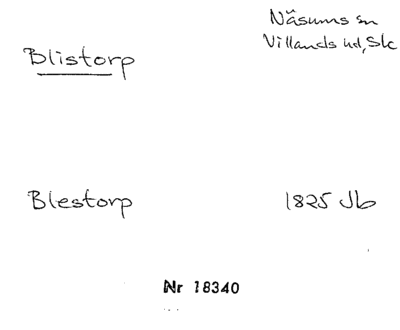 Näsums sn
Villands hd, Sk
Blistorp
Blestorp
1825 Jb
Nr 18340